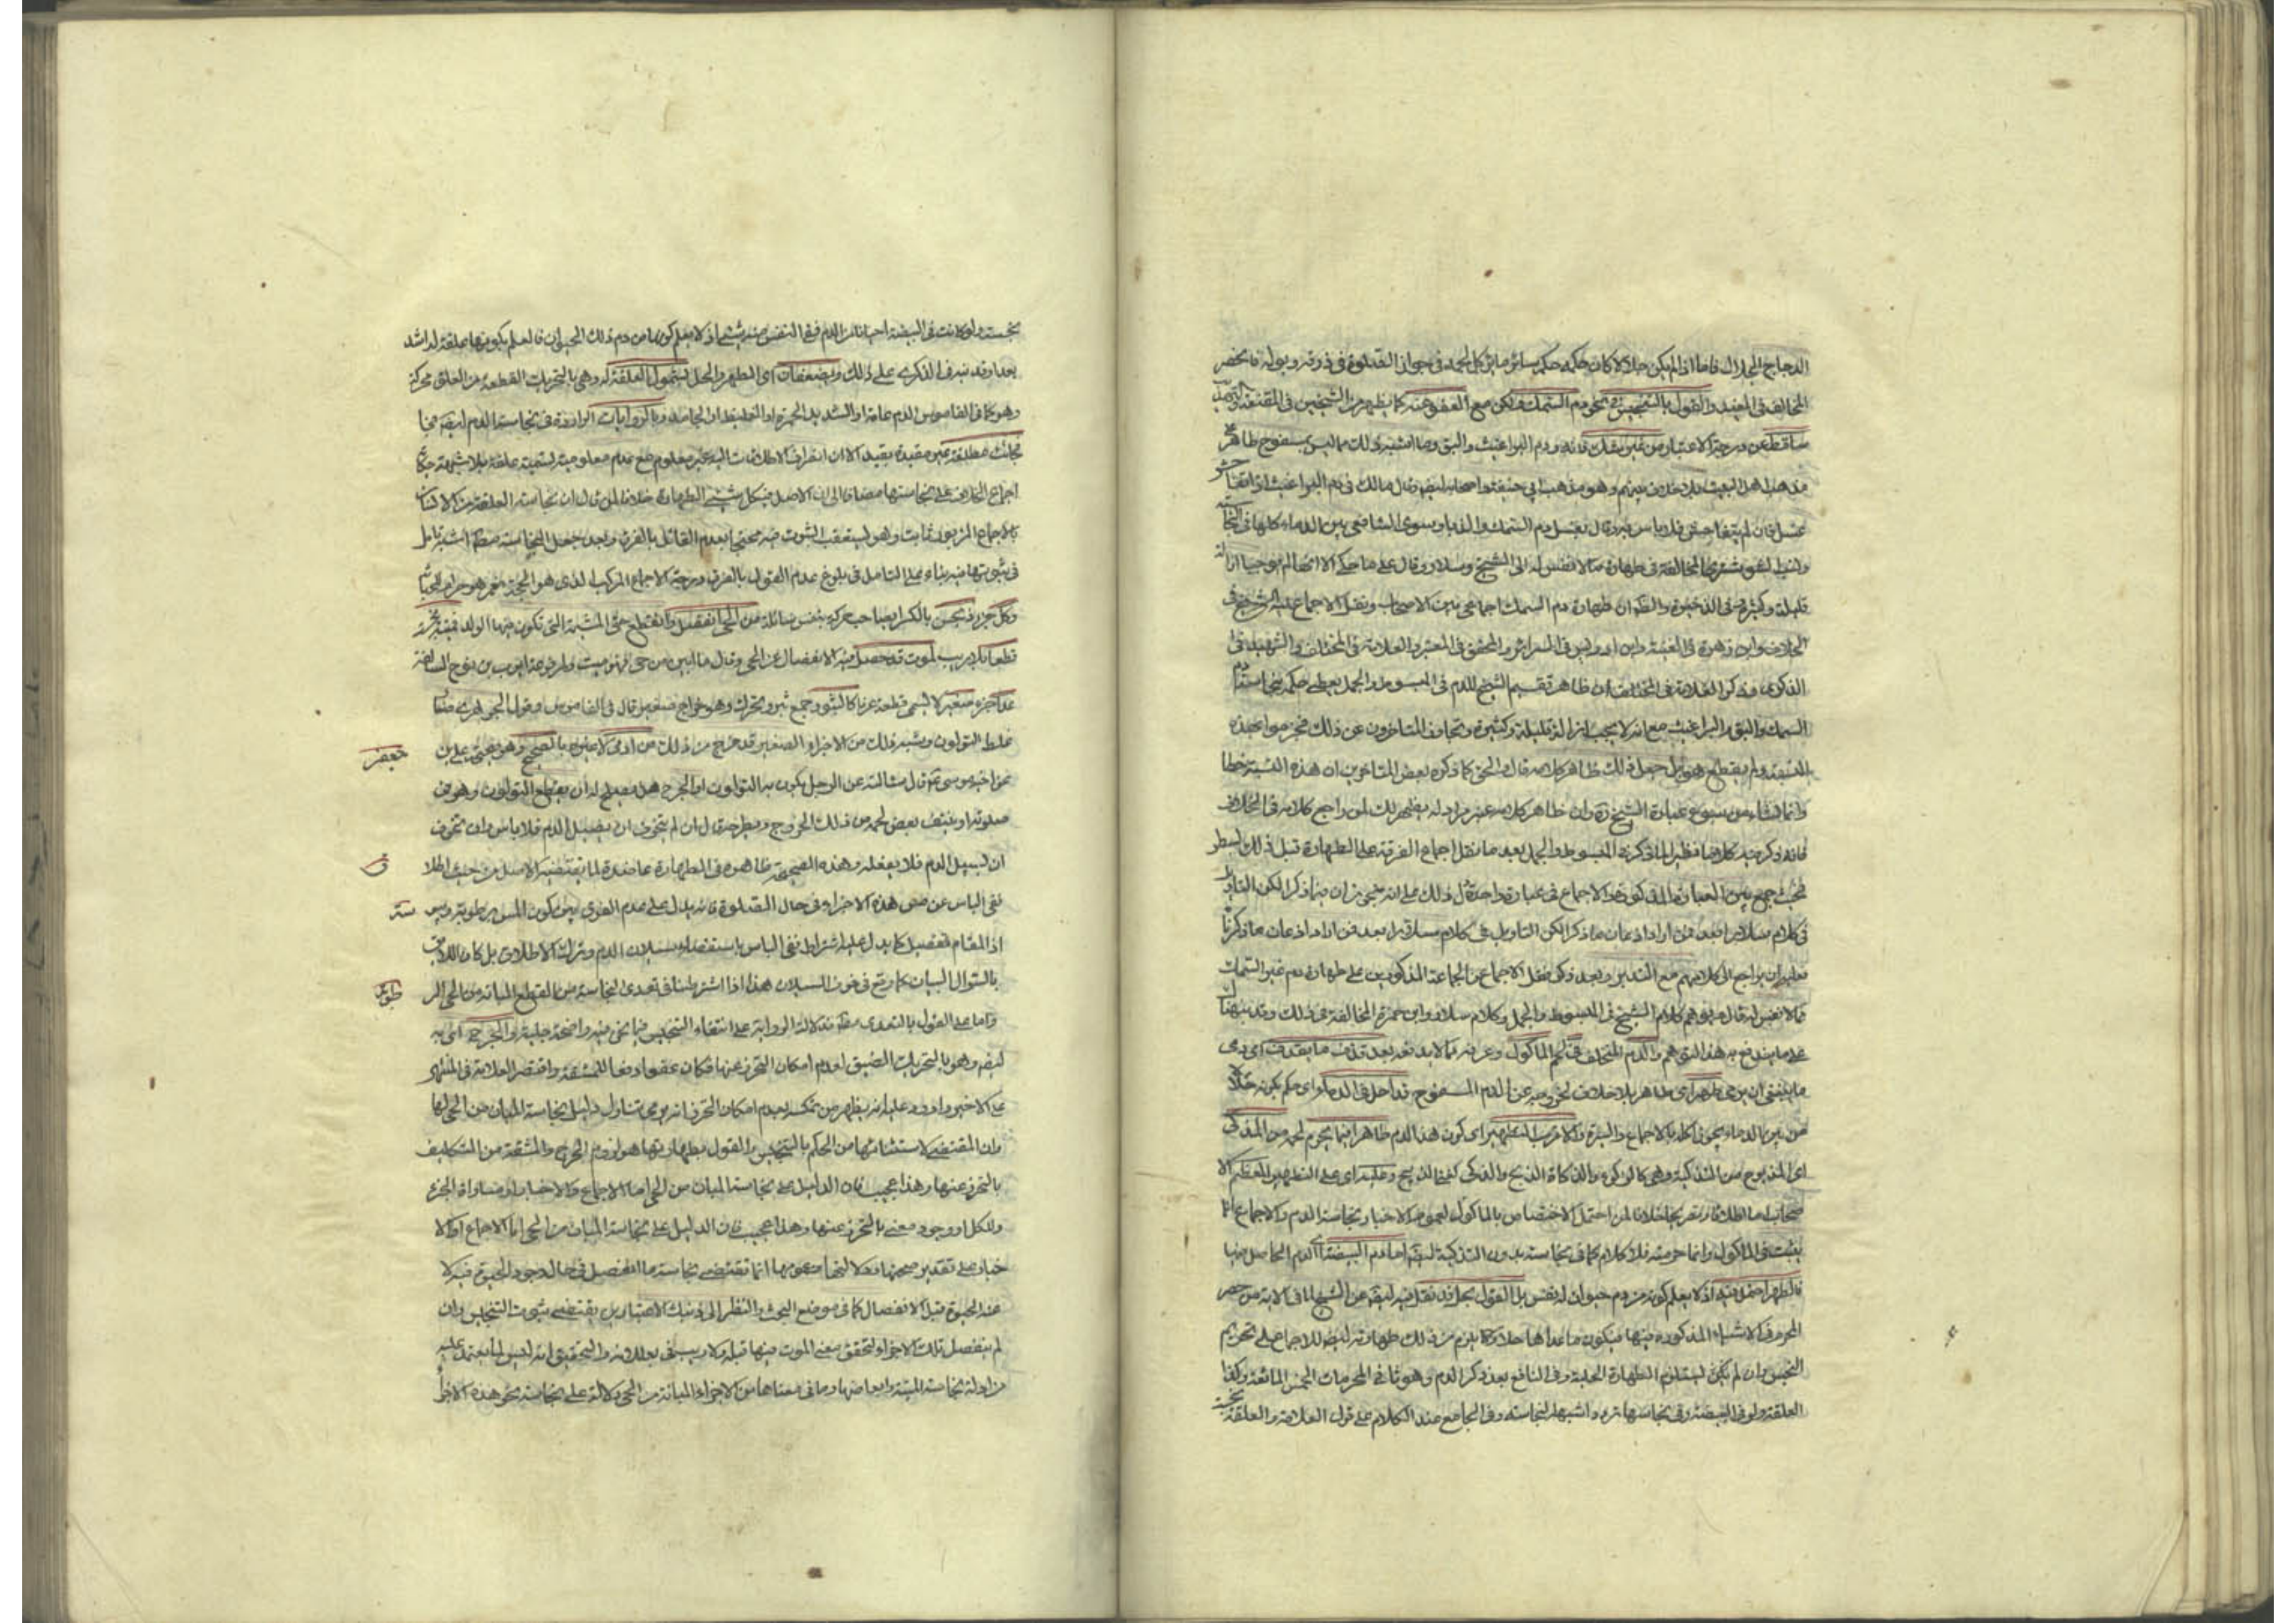 الدجاج الجلال فاما اذا لم يكن جلالا كان حكمه حكم سائر ما يؤكل لحمه في جواز الصلوة في ذرقه وبوله فانحصر
المخالف في المفيد والقول بالتنجيس في نحو دم السمك ولكن مع العفو عنه كما يظهر من الشيخين في المقنعة
ساقط عن درجة الاعتبار من غير شك فانه ودم البراغيث والبق وما اشبه ذلك مما ليس بمسفوح طاهر
مذهب اهل البيت بلا خلاف بينهم وهو مذهب ابي حنيفة واصحابه ايضا وقال مالك في دم البراغيث اذا تفاحش
غسل فان لم يتفاحش فلا باس به وقال يغسل دم السمك والذباب وسوى الشافعي بين الدماء كلها في النجاسة
قليله وكثيره وفي الذخيرة والظ ان طهارة دم السمك اجماعي بين الاصحاب ونقل الاجماع عليه الشيخ في
الخلاف وابن زهرة في الغنية وابن ادريس في السرائر والمحقق في المعتبر والعلامة في المختلف والشهيد في
الذكرى وذكر العلامة في المختلف ان ظاهر تقسيم الشيخ للدم في المبسوط والجمل يعطي حكمه بنجاسة دم
السمك والبق والبراغيث مع انه لا يجب ازالة قليله وكثيره وتجاوز المتاخرون عن ذلك فجزموا بهذه
النسبة ولم يقطع هو بل جعل ذلك ظاهر كلامه قال والحق كما ذكره بعض المتاخرين ان هذه النسبة خطا
وانما نشاء من سوء عبارة الشيخ ره وان ظاهر كلامه غير مراد له يظهر ذلك لمن راجع كلامه في الخلاف
فانه ذكر فيه كلاما نظير ما ذكره في المبسوط والجمل بعد ما نقل اجماع الفرقة على الطهارة قبل ذلك بسطر
فحيث جمع بين العبارة المذكورة والاجماع في عبارة واحدة دل ذلك على انه
في كلام سلار
فعليه ان يراجع الى كلامهم مع التدبر وبعد ذكر نقل الاجماع عن الجماعة المذكورين على طهارة دم غير السمك
مما لا نفس له قال فتوهم كلام الشيخ في المبسوط والجمل وكلام سلار وابن حمزة المخالفة في ذلك وقد نبهناك
على ما يندفع به هذا التوهم والدم المتخلف في لحم الماكول وعروقه مما لا يدفعه بعد قذف ما يقذف اي رمى
ما ينبغي ان يرمى طاهر اي طاهر بلا خلاف لخروجه عن الدم المسفوح
من بين الدماء يجوز اكله بالاجماع والسيرة والاقرب التطهير اي كون هذا الدم طاهرا فيما يحرم لحمه من المذكى
اي المذبوح من التذكية وهي كالذكوة والذكاة الذبح والذكي كغني الذبيح وعليه اي على التطهير المعظم
اصحابنا اطلاقا وتصريحا خلافا لمن احتمل الاختصاص بالماكول لعموم الاخبار بنجاسة الدم والاجماع انما
يثبت في الماكول وانما حرمته فلا كلام كما في نجاسته بدون التذكية ايضا اما دم البيضة اي الدم الحاصل فيها
فالطهر احتمل فيه اذ لا يعلم كونه من دم حيوان له نفس بل القول بحله قد نقل فيه ايضا عن الشيخ لما في الاية من حصر
المحرم في الاشياء المذكورة فيها فيكون ما عداها حلالا ويلزم من ذلك طهارته ايضا للاجماع على تحريم
النجس وان لم يكن يستلزم الطهارة الحلية وفي النافع بعد ذكر الدم وهو ثالث المحرمات الخمس المائعة وكذا
العلقة ولو في البيضة وفي نجاستها تردد واشبهه النجاسة وفي الجامع عند الكلام على قول العلامة والعلقة نجسة
نجسة ولو كانت في البيضة احيانا من الدم ففي النفس منه شيء اذ لا يعلم كونها من دم ذلك الحيوان فالعلم بكونها علقة له اشد
بعدا وقد نبه في الذكرى على ذلك وضعفت اي الطهر والحل شمول العلقة له وهي بالتحريك القطعة من العلق محركة
وهو كما في القاموس الدم عامة او الشديد الحمرة او الغليظ او الجامد وبالروايات الواردة في نجاسة الدم ايضا
كانت مطلقة غير مقيدة بقيد الا ان انصراف الاطلاقات اليه غير معلوم مع عدم معلومية تسميته علقة بلا شبهة
اجماع الخلاف على نجاستها مضافا الى ان الاصل في كل شيء الطهارة خلافا لمن قال ان نجاسة العلقة من الانسان
بالاجماع المزبور ثابت وهو يستعقب الثبوت فيه محتجا بعدم القائل بالفرق وبعد جعل النجاسة
في ثبوتها فيه بناء على التامل في بلوغ عدم القول بالفرق درجة الاجماع المركب الذي هو الحجة نعم هو حرام
وكل جزء نجس بالكسر لصاحب حركة بنفس سائلة من الحي انفصل وانقطع حتى المشيمة التي تكون فيها الولد
قطعا بلا ريب لموت قد حصل فيه الانفصال عن الحي وقال ما ابين من حي فهو ميت ولمرفوعة ايوب بن نوح السالفة
عدا جزء صغير لا يسمى قطعة عرفا كالبثور جمع بثر ويحرك وهو خراج صغير قال في القاموس وقول الجوهري صغار
غلط الثولول وشبه ذلك من الاجزاء الصغيرة قد خرج من ذلك من ادمي لا غيره بالصحيح وهو صحيح علي بن جعفر
عن اخيه موسى ع قال سئالته عن الرجل يكون به الثولول او الجرح هل يصلح له ان يقطع الثولول وهو في
صلوته او ينتف بعض لحمه من ذلك الجرح ويطرحه قال ان لم يتخوف ان يسيل الدم فلا باس وان تخوف
ان يسيل الدم فلا يفعله وهذه الصحيحة ظاهرة في الطهارة عاضدة لما يقتضيه الاصل من حيث اطلاق
نفي الباس عن مس هذه الاجزاء في حال الصلوة فانه يدل على عدم الفرق بين كون المس برطوبة ويبوسة
اذ المقام للتفصيل كما يدل عليه اشتراط نفي الباس
بالسؤال البيان كما وقع في خوف السيلان هذا اذا اشترطنا في تعدى النجاسة من القطع المبانة من الحي الرطوبة
واما على القول بالتعدى مط فدلالة الرواية على انتفاء التنجيس فيما نحن فيه واضحة جلية والحرج اي به
ايضا وهو بالتحريك الضيق لعدم امكان التحرز عنها فكان عفوا دفعا للمشقة واقتصر العلامة في المنتهى
على الاخير واورد عليه انه يظهر من تمسكه بعدم امكان التحرز انه يرى تناول دليل نجاسة المبان من الحي لها
وان المقتضى لاستثنائها من الحكم بالتنجيس والقول بطهارتها هو لزوم الحرج والمشقة من التكليف
بالتحرز عنها وهذا عجيب فان الدليل على نجاسة المبان من الحي اما الاجماع والاخبار او مساواة الجزء
وللكل او وجود معنى بالتحرز عنها وهذا عجيب فان الدليل على نجاسة المبان من الحي اما الاجماع او الا
خبار على تقدير صحتها ودلالتها بعمومها انما تقتضي نجاسة ما انفصل في حال وجود الحيوة فيه لا
عنه الحيوة قبل الانفصال كما في موضع البحث والنظر الى ذينك الاعتبارين يقتضي ثبوت التنجيس وان
لم ينفصل تلك الاجزاء لتحقق معنى الموت فيها قبله ولا ريب في بطلانه والتحقيق انه ليس لما يعتمد عليه
من ادلة نجاسة الميتة وابعاضها وما في معناها من الاجزاء المبانة من الحي دلالة على نجاسة نحو هذه الاجزاء